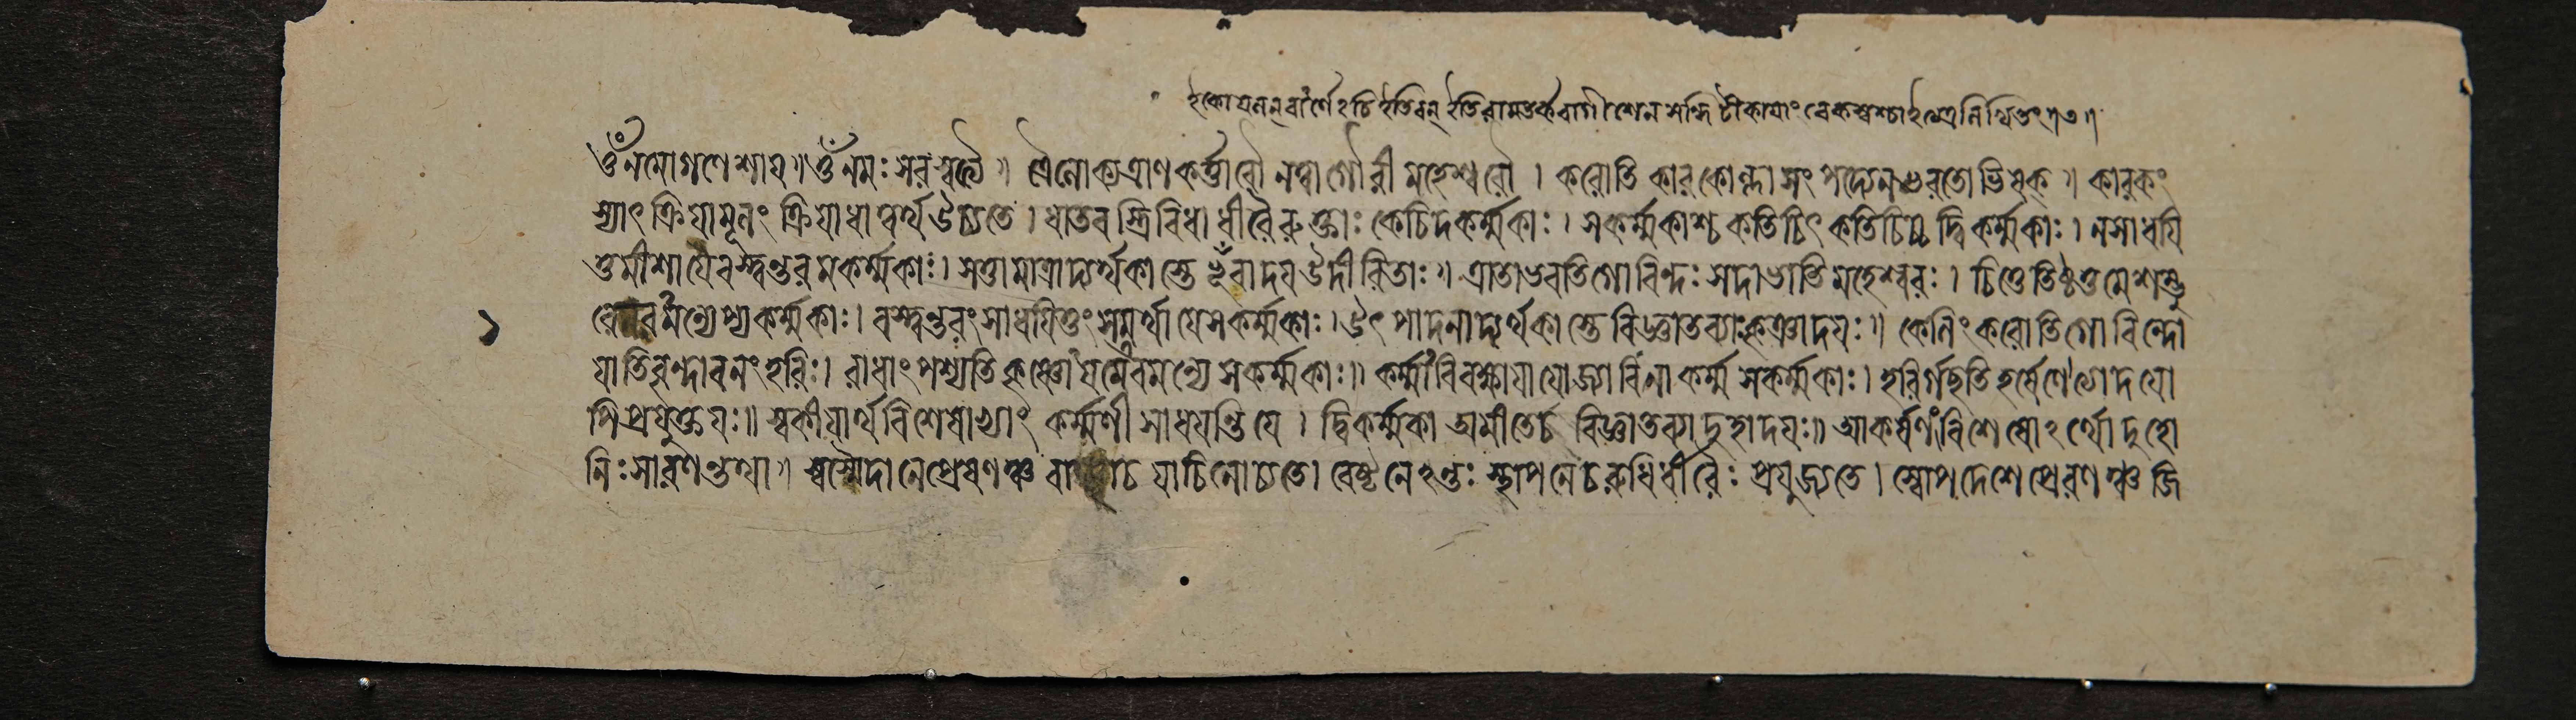 ইকোযনন্ বার্ণে২চি ইতিবন্ ইতিরামতর্কবাগীশেন সন্ধিটীকাযাং
ওঁ নমোগণেশায॥ ওঁ নমঃ সরস্বত্যৈ॥ ত্রৈলোক্যত্রাণকর্ত্তারৌ নত্বা গৌরীমহেশ্বরৌ। করোতি কারকোল্লাসং পদ্যেন ভরতো ভিষক্॥ কারকং
স্যাৎ ক্রিযামূলং ক্রিযাধাত্বর্থ উচ্যতে। ধাতবস্ত্রিবিধা ধীরৈরুক্তাঃ কেচিদকর্ম্মকাঃ। সকর্ম্মকাশ্চ কতিচিৎ কতিচিচ্চ দ্বিকর্ম্মকাঃ। নসাধযি
তুমীশা যে বস্ত্বন্তরমকর্ম্মকাঃ। সত্তামাত্রাদ্যর্থকাস্তে ভূঁবাদয উদীরিতাঃ॥ ত্রাতা ভবতি গোবিন্দঃ সদা ভাতি মহেশ্বরঃ। চিত্তে তিষ্ঠতু মে শম্ভু
রেবমন্যেপ্যকর্ম্মকাঃ। বস্ত্বন্তরং সাধযিতুং সমর্থা যে সকর্ম্মকাঃ। উৎপাদনাদ্যর্থকাস্তে বিজ্ঞাতব্যাঃ কৃঞাদযঃ॥ কেলিং করোতি গোবিন্দো
যাতি বৃন্দাবনং হরিঃ। রাধাং পশ্যতি কৃষ্ণোযমেবমন্যে সকর্ম্মকাঃ॥ কর্ম্মাবিবক্ষাযা যোজ্যা বিনা কর্ম্ম সকর্ম্মকাঃ। হরির্গচ্ছতি হর্ষেণে
পি প্রযুক্তযঃ॥ স্বকীযার্থবিশেষাখ্যাং কর্ম্মণী সাধযন্তি যে। দ্বিকর্ম্মকা অমী তেচ বিজ্ঞাতব্যা দুহাদযঃ॥ আকর্ষণং বিশেষো২র্থো দুহো
নিঃসারণন্তথা॥ স্বস্মৈদানে প্রেষণঞ্চ যাচিনোচ্যতে। বেষ্টনে২ন্তঃস্থাপনেচ রুধির্ধীরৈঃ প্রযুজ্যতে। স্বোপদেশে প্রেরণঞ্চ জি
১